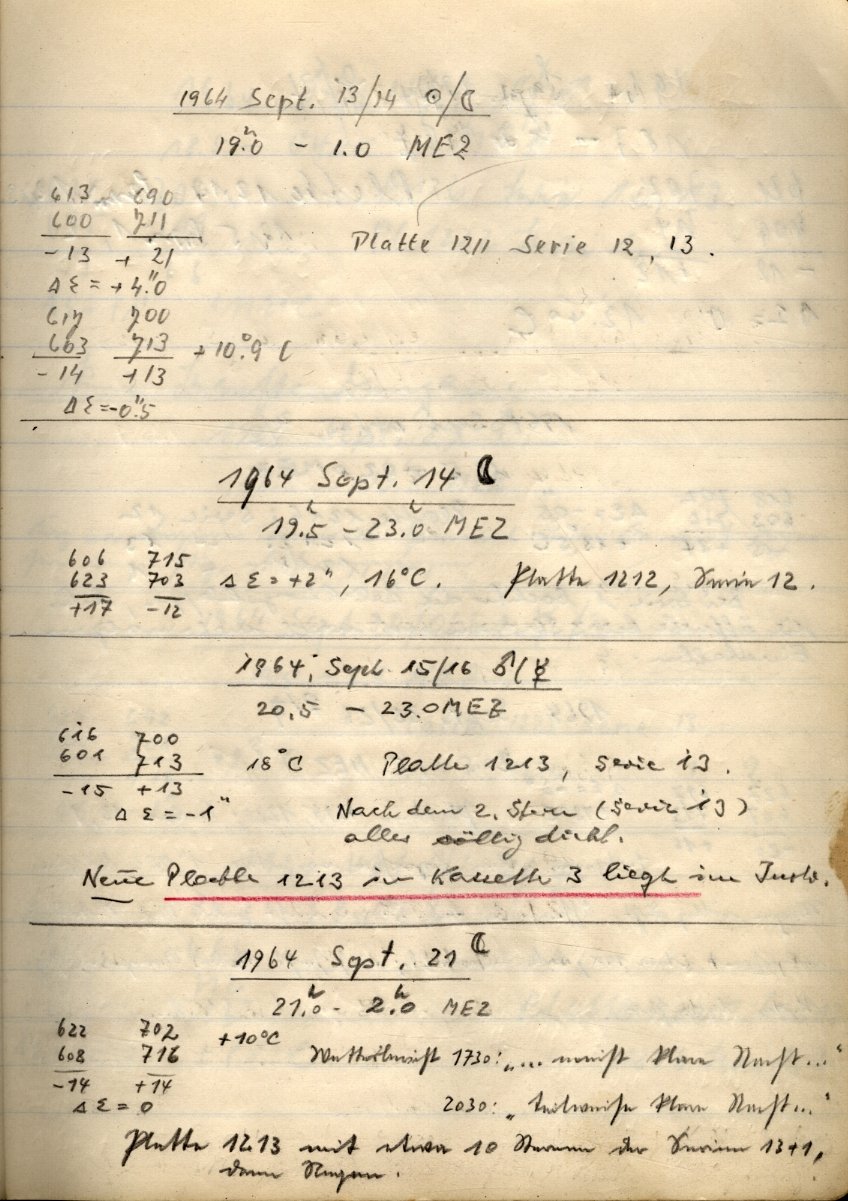 1964 Sept. 13/14 ☉/☾
19.ʰ0 – 1.0 MEZ
613 690
600 711
-13 + 21
Δ Σ = + 4."0
Platte 1211 Serie 12, 13.
617 700
603 713 + 10.°9 C
-14 +13
Δ Σ = -0."5
1964 Sept. 14 ☾
19.ʰ5 – 23.ʰ0 MEZ
606 715
623 703 Δ Σ = +2", 16°C. Platte 1212, Serie 12.
+17 -12
1964, Sept. 15/16 ♂/☿
20.5 – 23.0 MEZ
616 700
601 713 18°C Platte 1213, Serie 13.
-15 +13
Δ Σ = -1"
Nach dem 2. Stern (Serie 13)
alles völlig dicht.
Neue Platte 1213 in Kassette 3 liegt im Instr.
1964 Sept. 21 ☾
21.ʰ0 – 2.ʰ0 MEZ
622 702 +10°C
608 716 Wetterbericht 1730: „... meist klare Nacht..."
-14 +14
Δ Σ = 0 2030: „teilweise klare Nacht..."
Platte 1213 mit etwa 10 Sternen der Serien 13+1,
dann Regen.